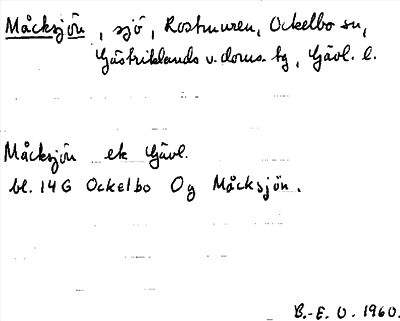 Måcksjön, sjö, Rostmuren, Ockelbo sn,
Gästriklands v. doms. tg, Gävl. l.
Måcksjön ek Gävl.
bl. 14 G Ockelbo Og Måcksjön.
B.-E. O. 1960.